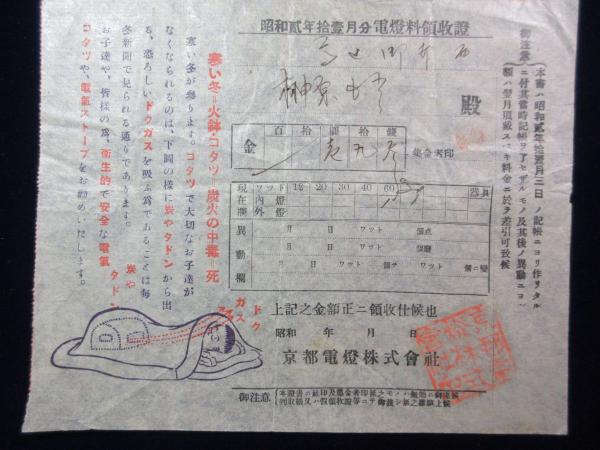 昭和貳年拾壹月分電燈料領收證
殿
百 拾 圓 拾 錢
金
集金者印
現在欄
ワット 12 20 30 40 60
器具
内燈
外燈
異動欄
月 日 ワット 個点
月 日 ワット 個廢
月 日 ワット 個ヲ ワット 個ニ變
上記之金額正ニ領收仕候也
昭和 年 月 日
京都電燈株式會社
御注意
御注意
本書ハ昭和貳年拾壹月二日ノ記帳ニヨリ作リタル
ニ付其當時記帳ヲ了セザルモノ及其後ノ異動ニヨ
額ハ翌月頂戴スベキ料金ニ於テ差引可致候
寒い冬=火鉢・コタツ=炭火の中毒=死
寒い冬が參ります。コタツで大切なお子達が
なくなられるのは、下圖の様に炭やタドンから出
る、恐ろしいドクガスを吸ふ爲であることは毎
冬新聞で見られる通りであります。
お子達や、皆様の爲、衞生的で安全な電氣
コタツや、電氣ストーブをお勧めいたします。
炭や
タドン
ドク
ガス